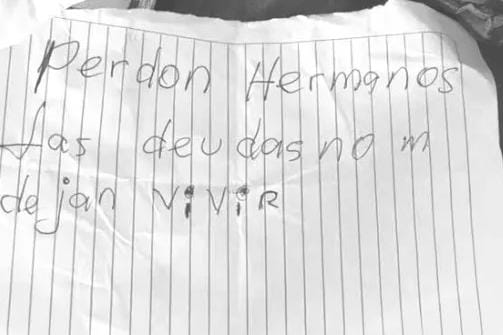 Perdon Hermanos
las deudas no m
dejan vivir